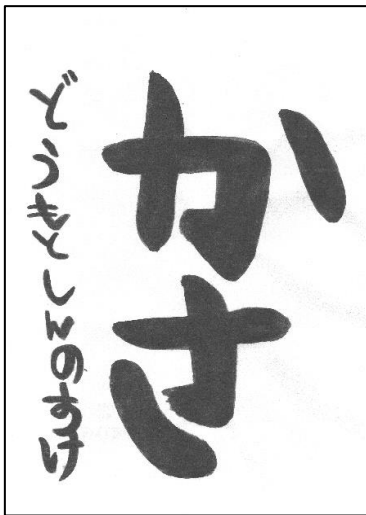 かさ
どうもとしんのすけ